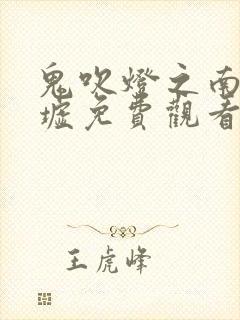 鬼吹燈之南
墟免費觀看
王虎峰